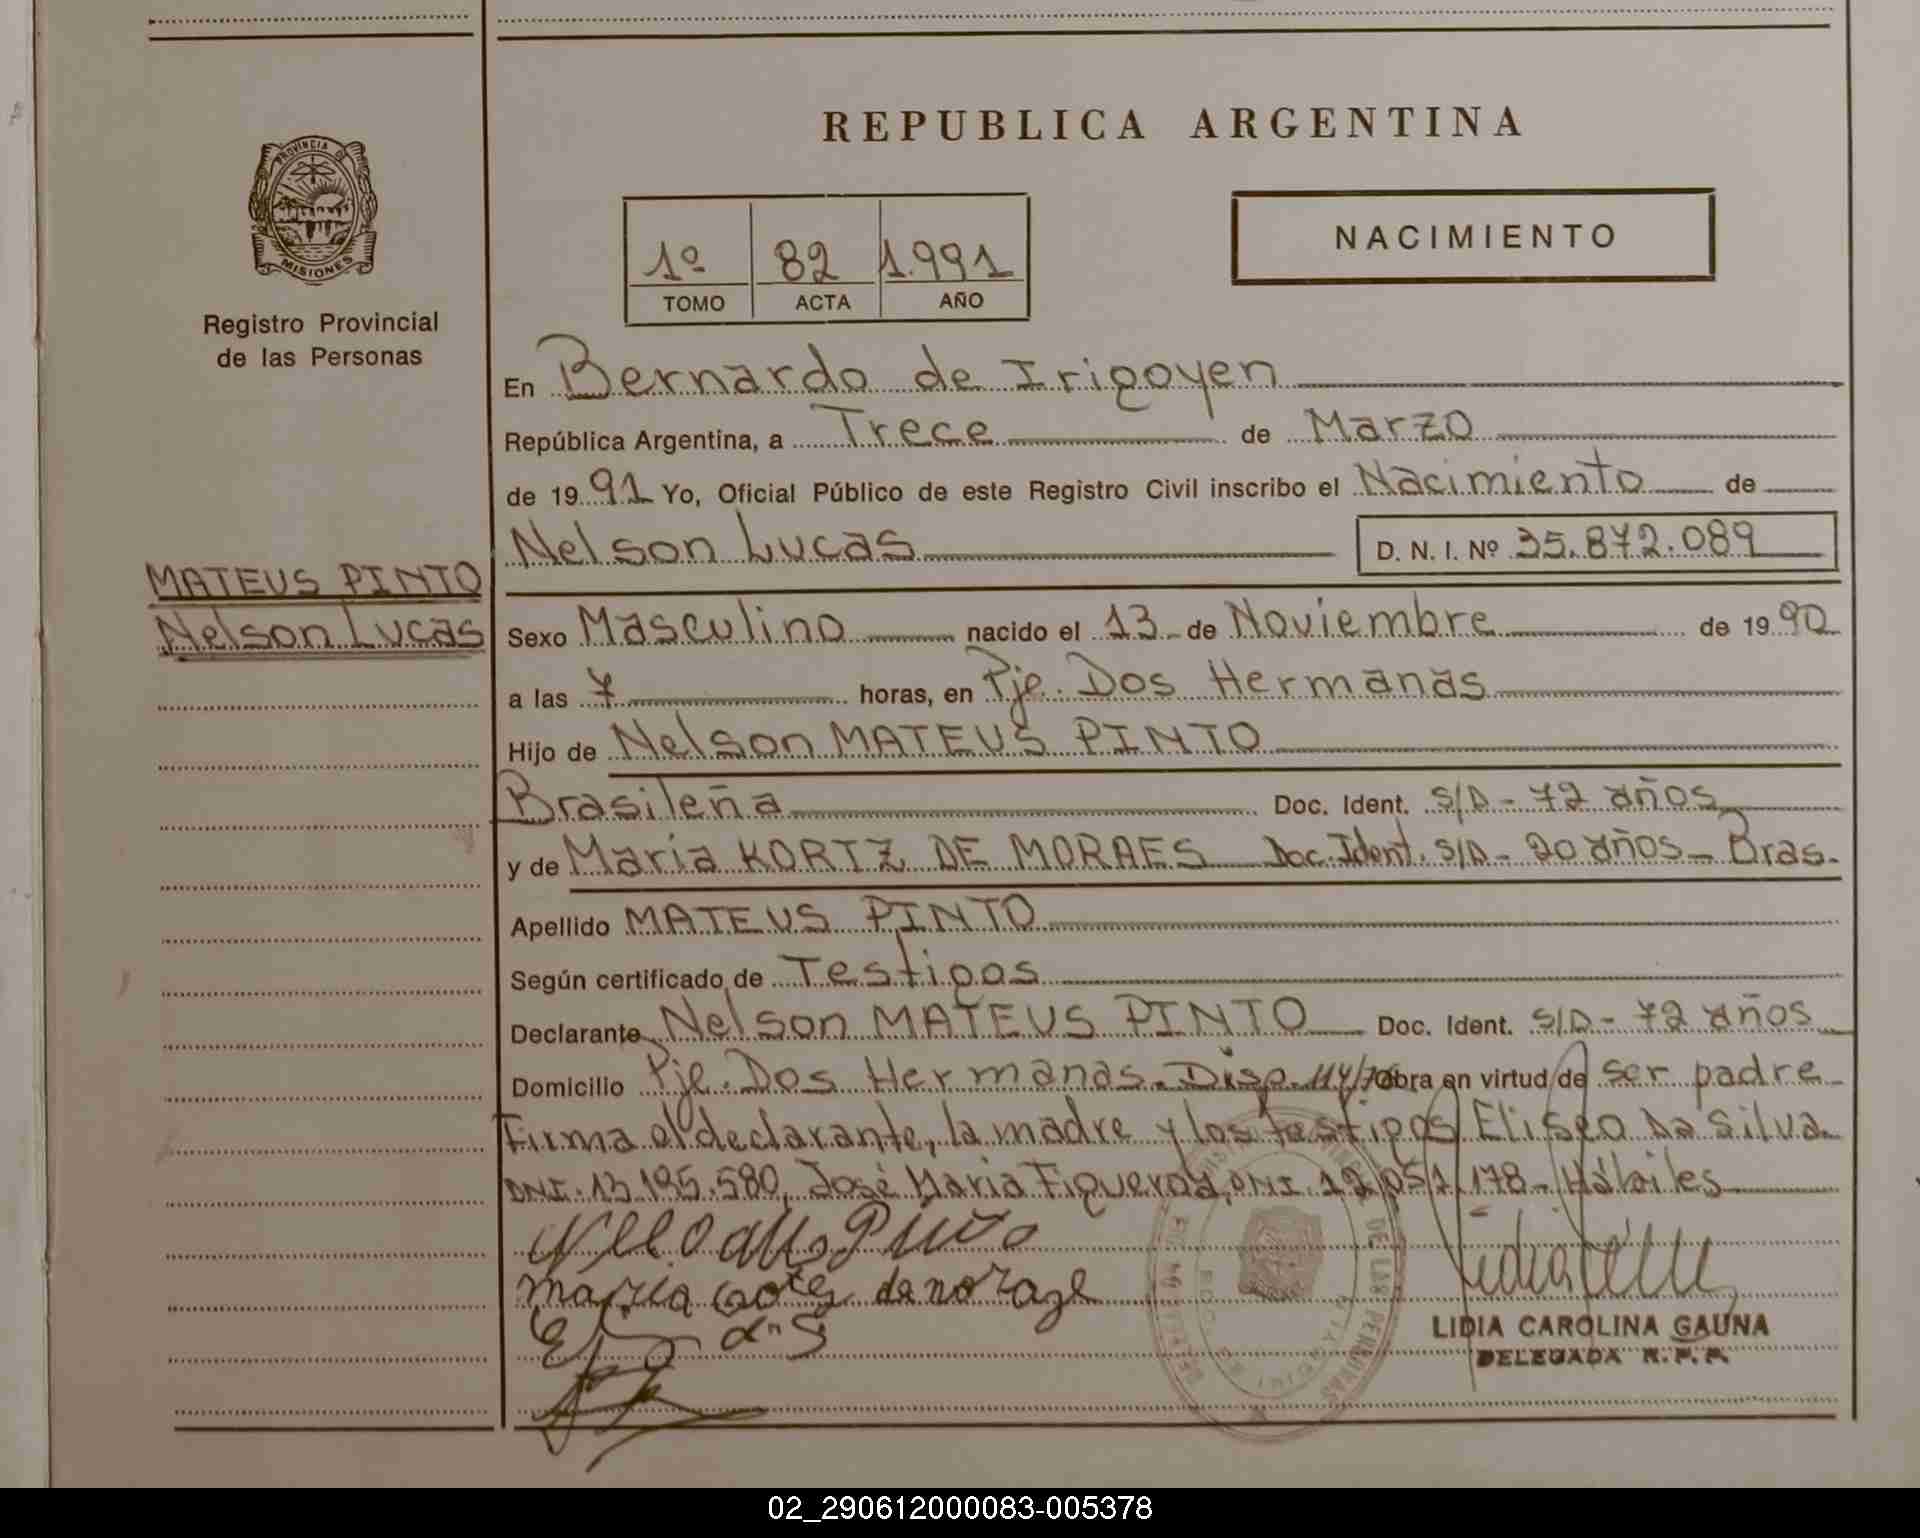 REPUBLICA ARGENTINA
PROVINCIA DE
MISIONES
Registro Provincial
de las Personas
1º 82 1.991
TOMO ACTA AÑO
NACIMIENTO
En Bernardo de Irigoyen
República Argentina, a Trece de Marzo
de 1991 Yo, Oficial Público de este Registro Civil inscribo el Nacimiento de
Nelson Lucas D. N. I. Nº 35.872.089
MATEUS PINTO
Nelson Lucas
Sexo Masculino nacido el 13 de Noviembre de 1990
a las 7 horas, en Pje. Dos Hermanas
Hijo de Nelson MATEUS PINTO
Brasileña Doc. Ident. S/D - 72 años
y de Maria KORTZ DE MORAES Doc. Ident. S/D - 20 años - Bras.
Apellido MATEUS PINTO
Según certificado de Testigos
Declarante Nelson MATEUS PINTO Doc. Ident. S/D - 72 años
Domicilio Pje. Dos Hermanas. Disp. 114/78 Obra en virtud de ser padre
Firma el declarante, la madre y los testigos Eliseo Da Silva
DNI. 13.195.580, José Maria Figueroa, DNI. 12.057.178 - Hábiles
LIDIA CAROLINA GAUNA
DELEGADA R.P.P.
02_290612000083-005378